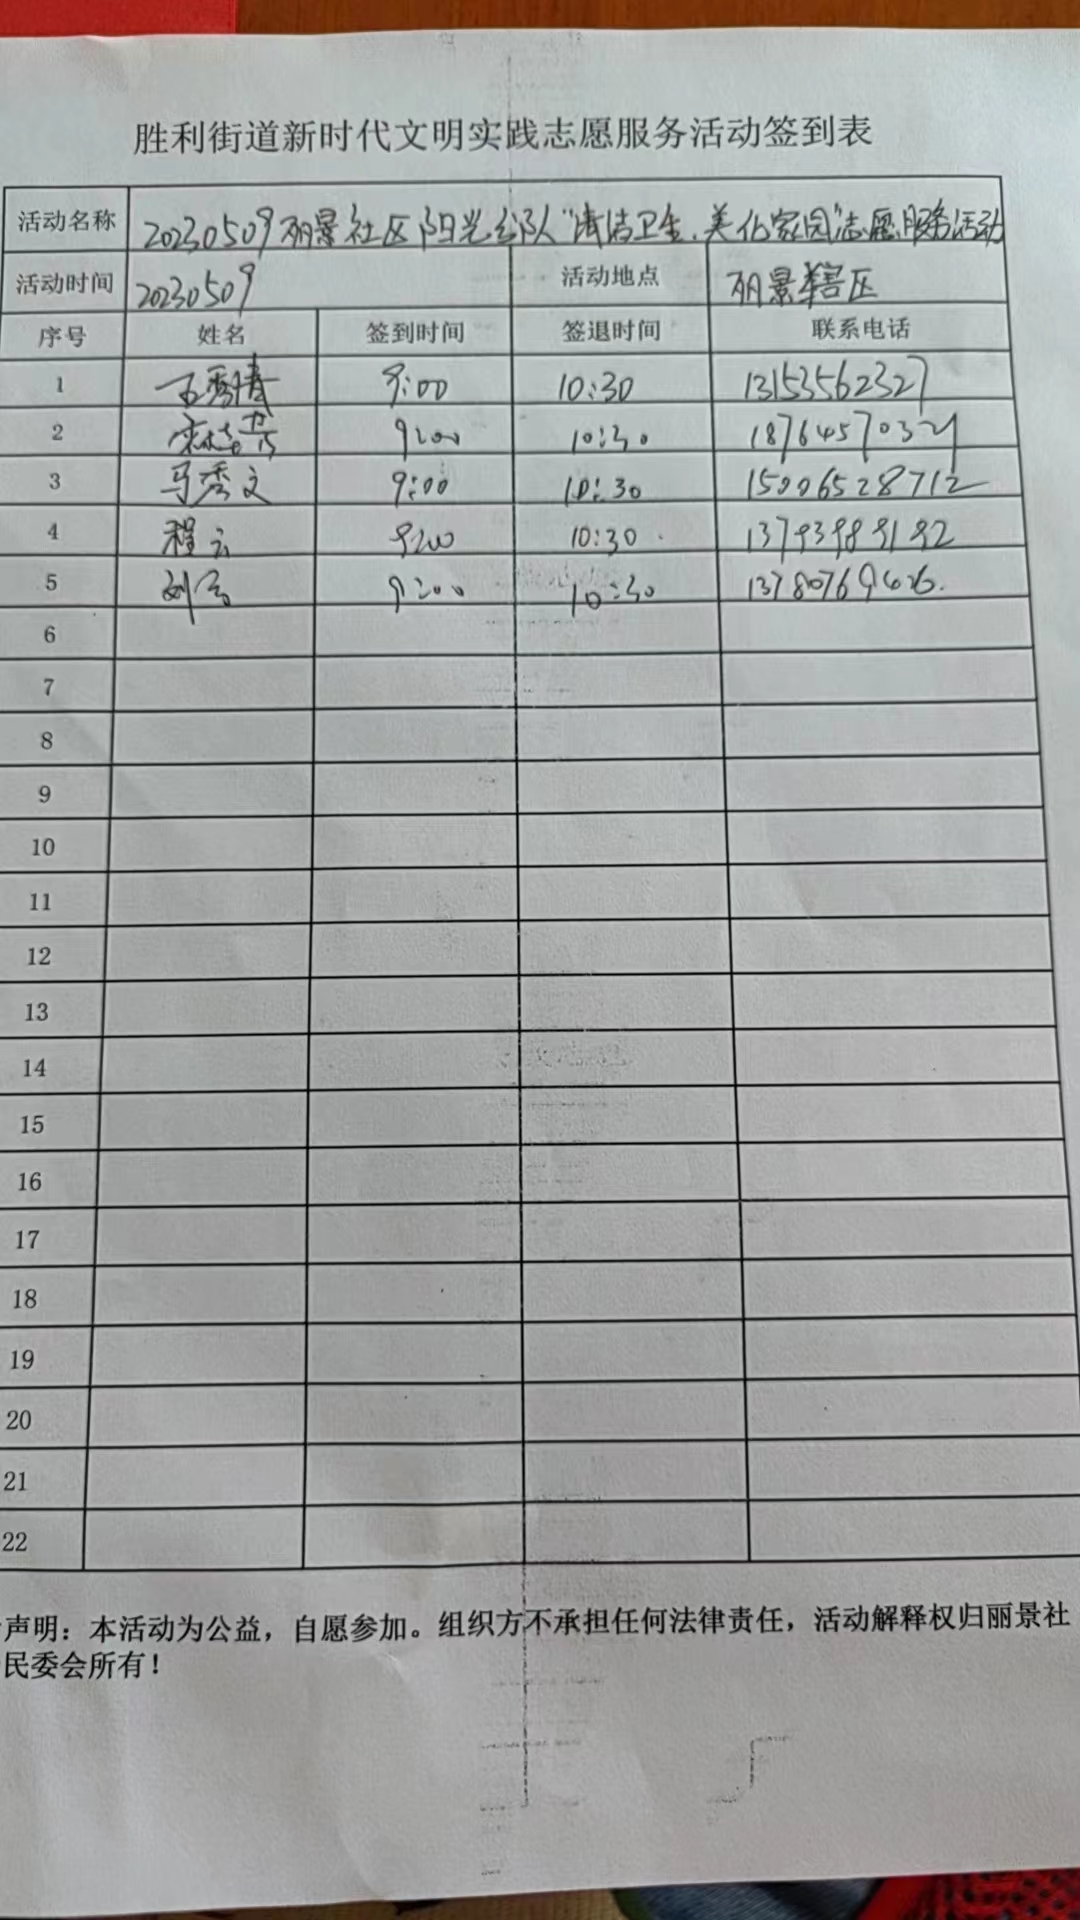 胜利街道新时代文明实践志愿服务活动签到表
活动名称 20230509丽景社区阳光分队“清洁卫生、美化家园”志愿服务活动
活动时间 20230509 活动地点 丽景辖区
序号 姓名 签到时间 签退时间 联系电话
1 9:00 10:30 13153562327
2 9:00 10:30
3 马秀文 9:00 10:30 15006528712
4 程云 9:00 10:30 13793989192
5 9:00 10:30
6
7
8
9
10
11
12
13
14
15
16
17
18
19
20
21
22
声明：本活动为公益，自愿参加。组织方不承担任何法律责任，活动解释权归丽景社
民委会所有！